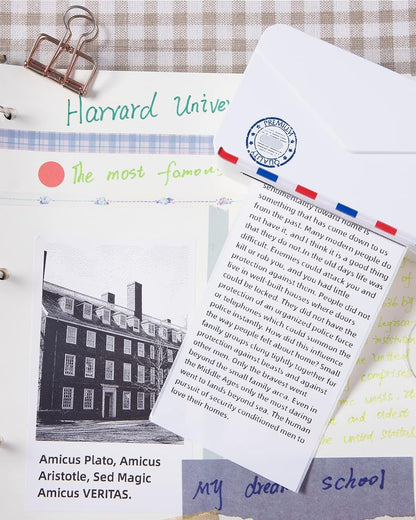 Harvard Unive
PREMIUM
QUALITY
The most famous
sentimentality toward home is
something that has come down to us
from the past. Many modern people do
not have it, and I think it is a good thing
that they do not. In the old days life was
difficult. Enemies could attack you and
kill or rob you, and you had little
protection against them. People did not
live in well-built houses where doors
could be locked. They did not have the
protection of an organized police force
or telephones which could summon the
police instantly. How did this influence
the way people felt about home? Small
family groups clung tightly together for
protection against beasts and against
other men. Only the bravest went
beyond the small family area. Even in
the Middle Ages only the most daring
went to lands beyond sea. The human
pursuit of security conditioned men to
love their homes.
Amicus Plato, Amicus
Aristotle, Sed Magic
Amicus VERITAS.
and oldest
the United States
My dream school